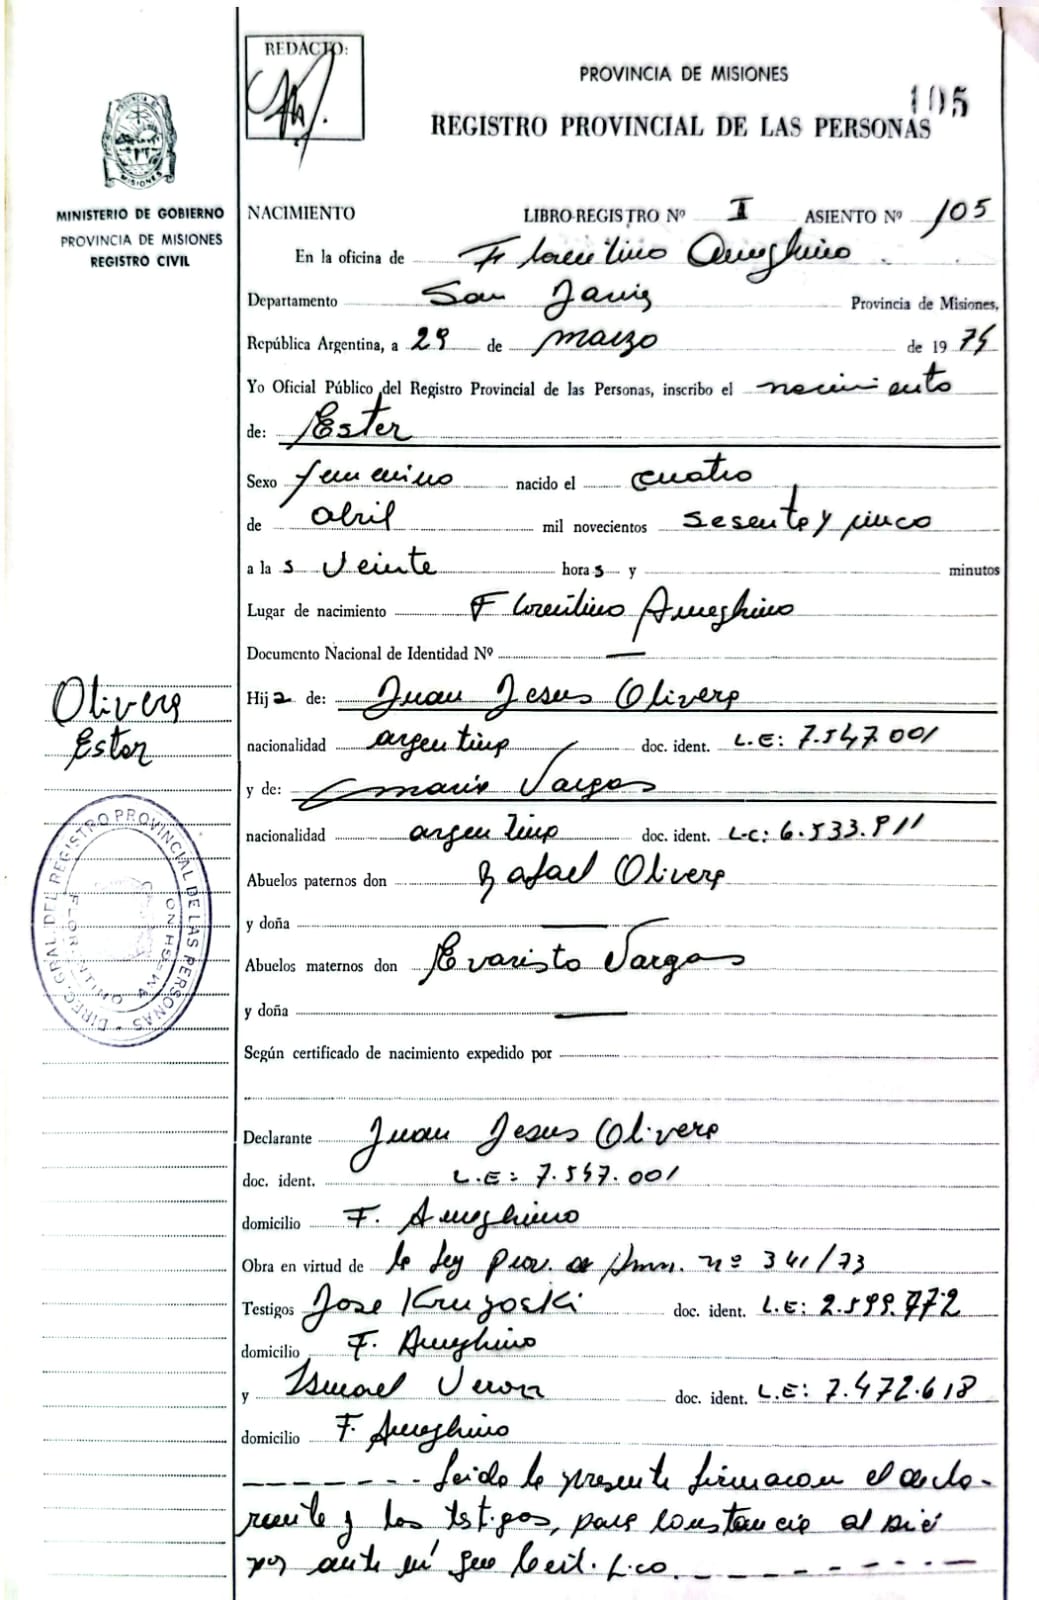 REDACTO:
PROVINCIA DE MISIONES
105
REGISTRO PROVINCIAL DE LAS PERSONAS
MISIONES
MINISTERIO DE GOBIERNO
PROVINCIA DE MISIONES
REGISTRO CIVIL
NACIMIENTO LIBRO-REGISTRO Nº I ASIENTO Nº 105
En la oficina de Florentino Ameghino
Departamento San Javier Provincia de Misiones,
República Argentina, a 29 de marzo de 1974
Yo Oficial Público del Registro Provincial de las Personas, inscribo el nacimiento
de: Ester
Sexo femenino nacido el cuatro
de abril mil novecientos sesenta y cinco
a la s veinte hora s y minutos
Lugar de nacimiento Florentino Ameghino
Documento Nacional de Identidad Nº —
Olivera
Ester
Hija de: Juan Jesus Olivera
nacionalidad argentina doc. ident. L.E: 7.547.001
y de: Maria Vargas
nacionalidad argentina doc. ident. L.C: 6.533.911
Abuelos paternos don Rafael Olivera
y doña —
Abuelos maternos don Evaristo Vargas
y doña —
DIREC. GRAL. DEL REGISTRO PROVINCIAL DE LAS PERSONAS
Según certificado de nacimiento expedido por
Declarante Juan Jesus Olivera
doc. ident. L.E: 7.547.001
domicilio F. Ameghino
Obra en virtud de la Ley prov. de Amn. nº 341/73
Testigos Jose Kruzoski doc. ident. L.E: 2.599.772
domicilio F. Ameghino
y Ismael Veron doc. ident. L.E: 7.472.618
domicilio F. Ameghino
Leida la presente firmaron el decla-
rante y los testigos, para constancia al pie
por ante mi que certifico.